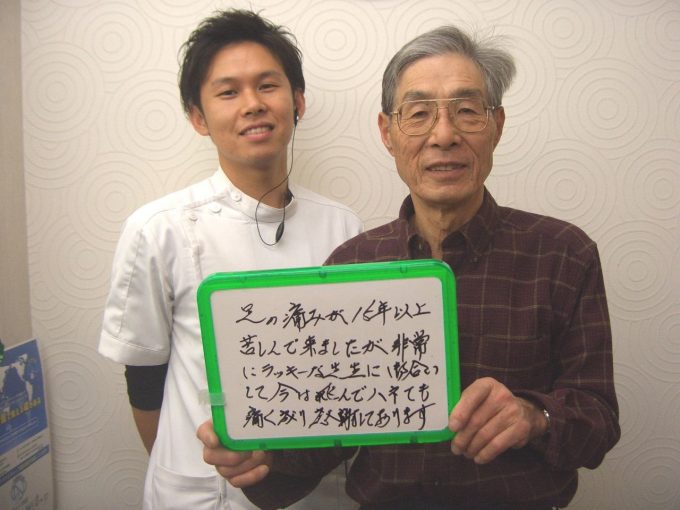 足の痛みが15年以上
苦しんで来ましたが、非常
にラッキーな先生に出会い
して今は飛んでハネても
痛くなり感謝しております